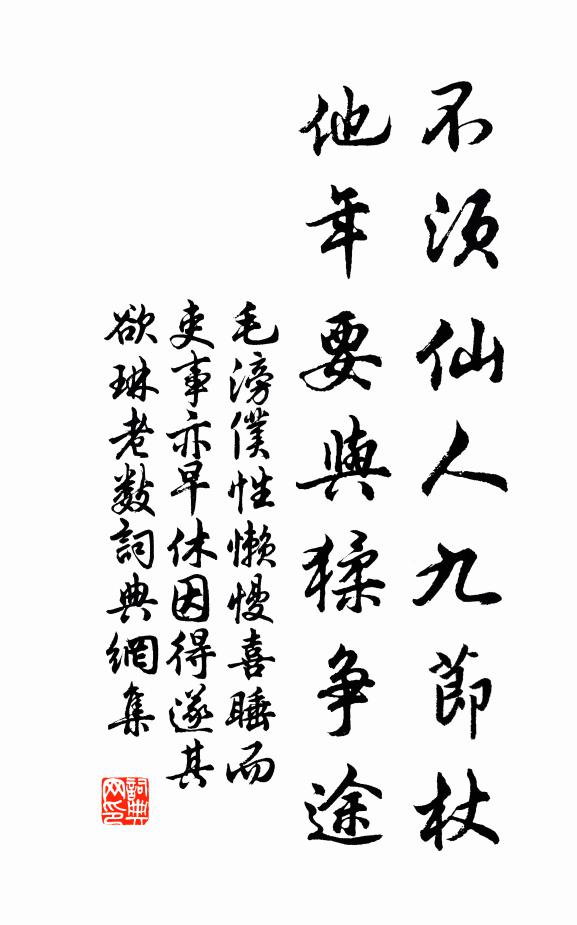 不須仙人九節杖
他年要與猱争途
毛滂僕性懶慢喜睡而
吏事亦早休因得遂其
欲琳老數詞典網集
詞典
网印